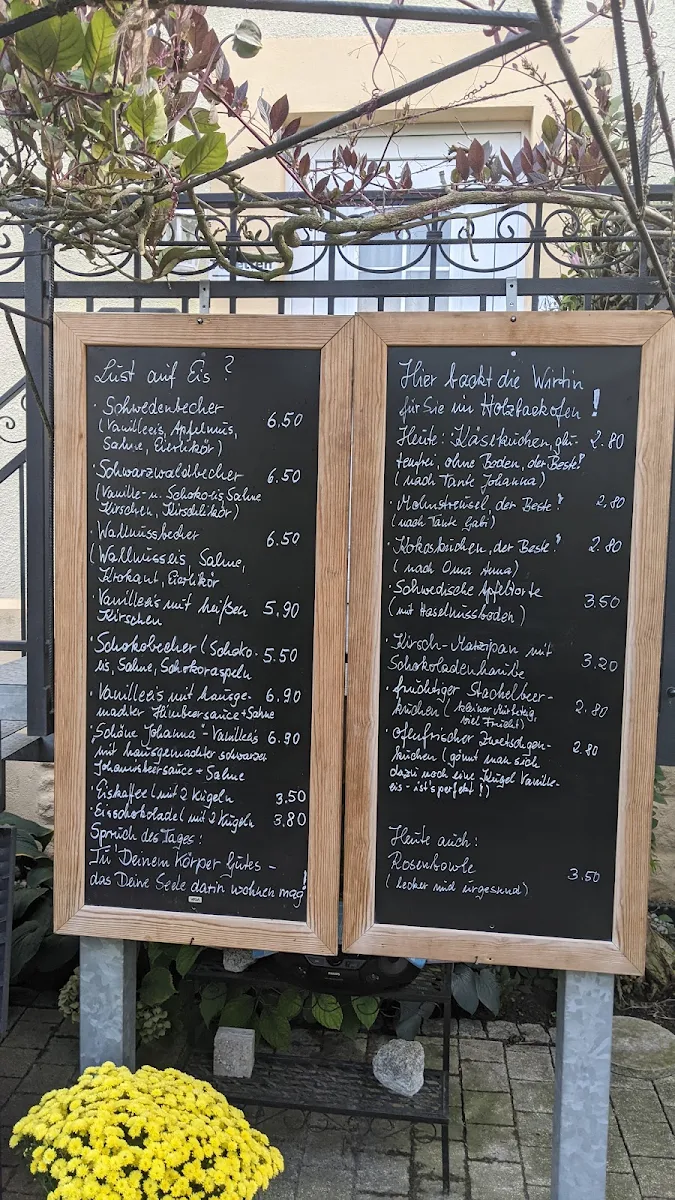 Lust auf Eis?
· Schwedenbecher 6.50
(Vanilleeis, Apfelmus,
Sahne, Eierlikör)
· Schwarzwaldbecher 6.50
(Vanille- u. Schokoeis, Sahne
Kirschen, Kirschlikör)
· Wallnussbecher 6.50
(Wallnusseis, Sahne,
Krokant, Eierlikör
· Vanilleeis mit heißen 5.90
Kirschen
· Schokobecher (Schoko- 5.50
eis, Sahne, Schokoraspeln
· Vanilleeis mit hausge- 6.90
machter Himbeersauce + Sahne
· "Schöne Johanna" - Vanilleeis 6.90
mit hausgemachter schwarzer
Johannisbeersauce + Sahne
· Eiskaffee (mit 2 Kugeln 3,50
· Eisschokolade (mit 2 Kugeln 3,80
Spruch des Tages:
Tu' Deinem Körper Gutes -
das Deine Seele darin wohnen mag!
Hier backt die Wirtin
für Sie im Holzbackofen!
Heute: Käsekuchen, glu- 2.80
tenfrei, ohne Boden, der Beste!
(nach Tante Johanna)
· Mohnstreusel, der Beste! 2,80
(nach Tante Gabi)
· Kokoskuchen, der Beste! 2.80
(nach Oma Anna)
· Schwedische Apfeltorte 3.50
(mit Haselnussboden)
· Kirsch-Marzipan mit 3.20
Schokoladenhaube
· fruchtiger Stachelbeer- 2.80
kuchen (kleiner Mürbeteig,
viel Frucht)
· ofenfrischer Zwetschgen- 2.80
kuchen (gönnt man sich
dazu noch eine Kugel Vanille-
eis - ist's perfekt!)
Heute auch:
Rosenbowle 3.50
(lecker und ungesund)